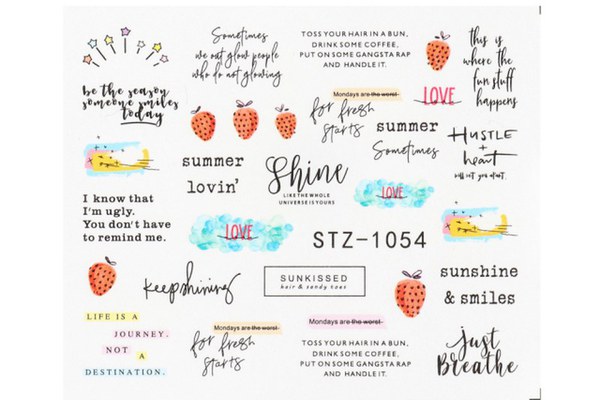 Sometimes
we out glow people
who do not glowing
TOSS YOUR HAIR IN A BUN,
DRINK SOME COFFEE,
PUT ON SOME GANGSTA RAP
AND HANDLE IT.
this is
where the
fun stuff
happens
be the season
someone smiles
today
Mondays are the worst
for fresh
starts
LOVE
summer
Sometimes
HUSTLE
+
heart
will set you apart.
summer
lovin'
Shine
LIKE THE WHOLE
UNIVERSE IS YOURS
LOVE
I know that
I'm ugly.
You don't have
to remind me.
LOVE
STZ-1054
keep shining
SUNKISSED
hair & sandy toes
sunshine
& smiles
LIFE IS A
JOURNEY.
NOT A
DESTINATION.
Mondays are the worst
for fresh
starts
Mondays are the worst
TOSS YOUR HAIR IN A BUN,
DRINK SOME COFFEE,
PUT ON SOME GANGSTA RAP
AND HANDLE IT.
just
Breathe